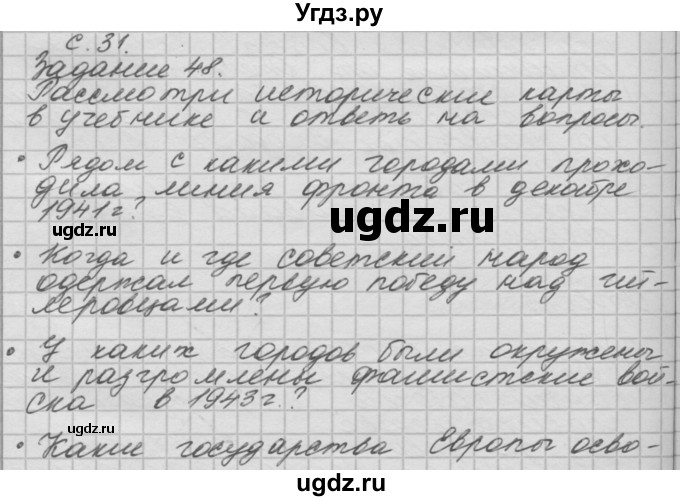 Угдз.ру
с. 31.
Задание 48.
Рассмотри исторические карты
в учебнике и ответь на вопросы.
• Рядом с какими городами прохо-
дила линия фронта в декабре
1941 г?
ugdz.ru
ugdz.ru
• Когда и где советский народ
одержал первую победу над гит-
леровцами?
• У каких городов были окружены
и разгромлены фашистские вой-
ска в 1943 г.?
ugdz.ru
• Какие государства Европы осво-
ugdz.ru